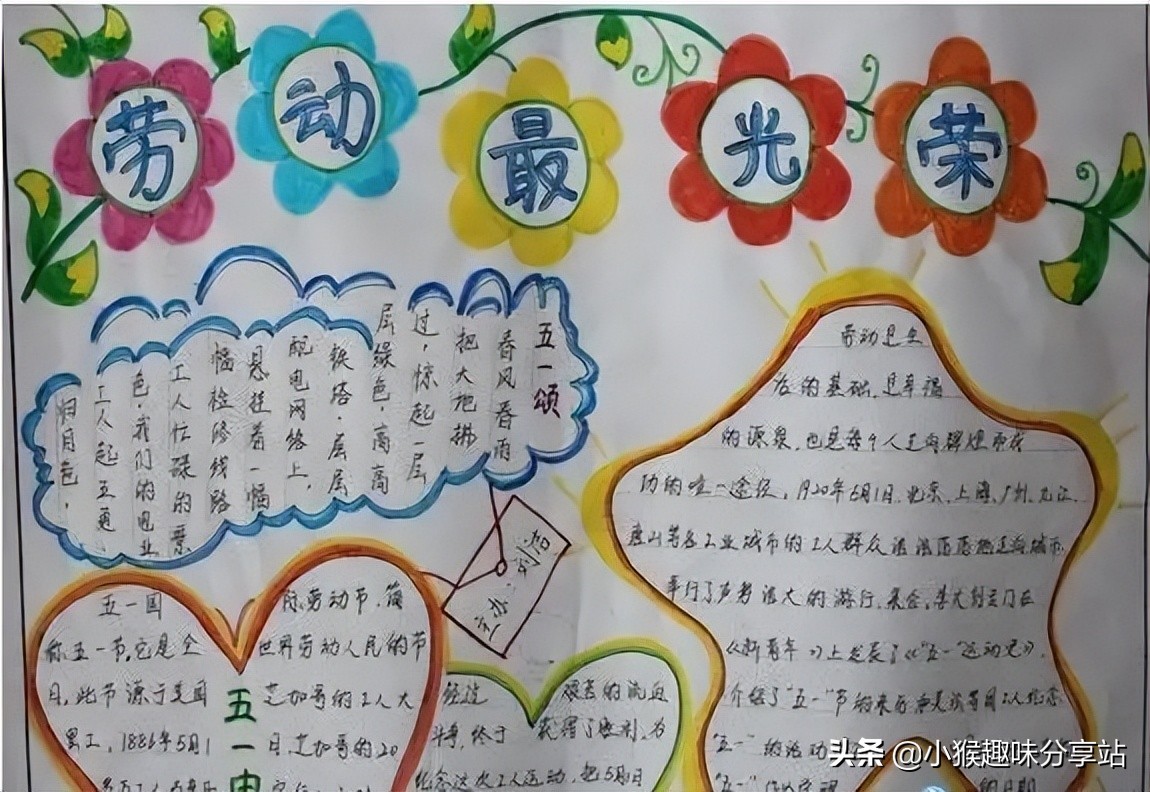 劳动最光荣
五一颂
春风春雨
把大地拂
过，惊起一层
层绿色，高高
铁塔·层层
配电网络上，
悬挂着一幅
幅检修线路
工人忙碌的景
色·我们的电业
工人起五更
归月色，
劳动是生
活的基础，是幸福
的源泉，也是每个人走向辉煌和成
功的唯一途径，1920年5月1日，北京、上海、广州、九江、
唐山等各工业城市的工人群众浩浩荡荡地走向城市，
举行了声势浩大的游行、集会，李大钊专门在
《新青年》上发表了《"五一"运动史》，
介绍了"五一"节的来历
"五一"的活动
"五一"
的日期
五一国际劳动节，简
称五一节，它是全世界劳动人民的节
日，此节源于美国芝加哥的工人大
罢工，1886年5月1日，芝加哥的20
五一由
经过艰苦的流血
斗争，终于获得了胜利，为
纪念这次工人运动，把5月日
头条 @小猴趣味分享站